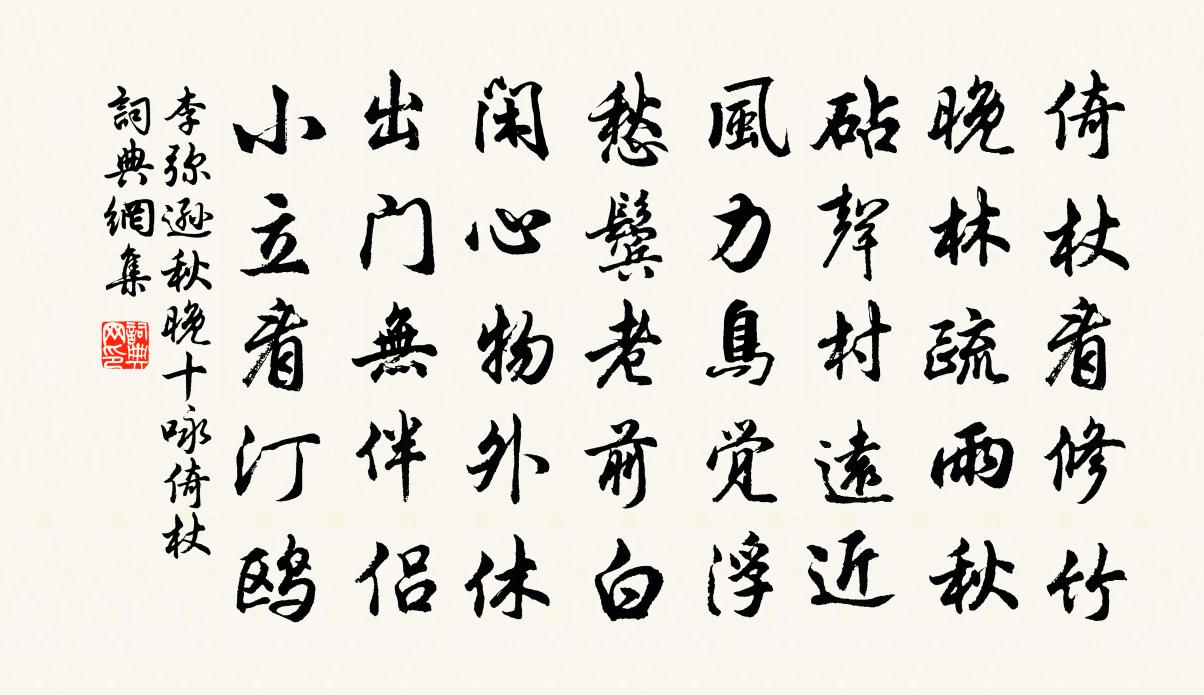 倚杖看修竹
晚林疏雨秋
砧聲村遠近
風力鳥覺浮
愁鬢老前白
閑心物外休
出门無伴侣
小立看汀鸥
李弥遜秋晚十咏倚杖
詞典網集
詞典网印